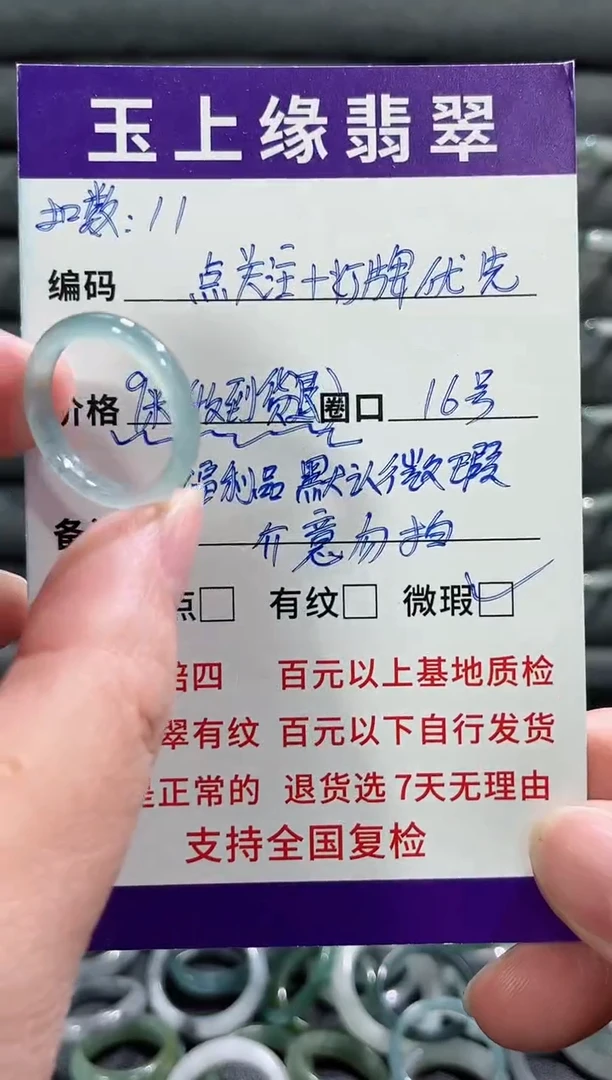 玉上缘翡翠
扣数:11
编码 点关注+灯牌优先
价格 9米(收到货民) 圈口 16号
福利品 默认微瑕
备 介意勿拍
点□ 有纹□ 微瑕☑
赔四 百元以上基地质检
翠有纹 百元以下自行发货
是正常的 退货选7天无理由
支持全国复检